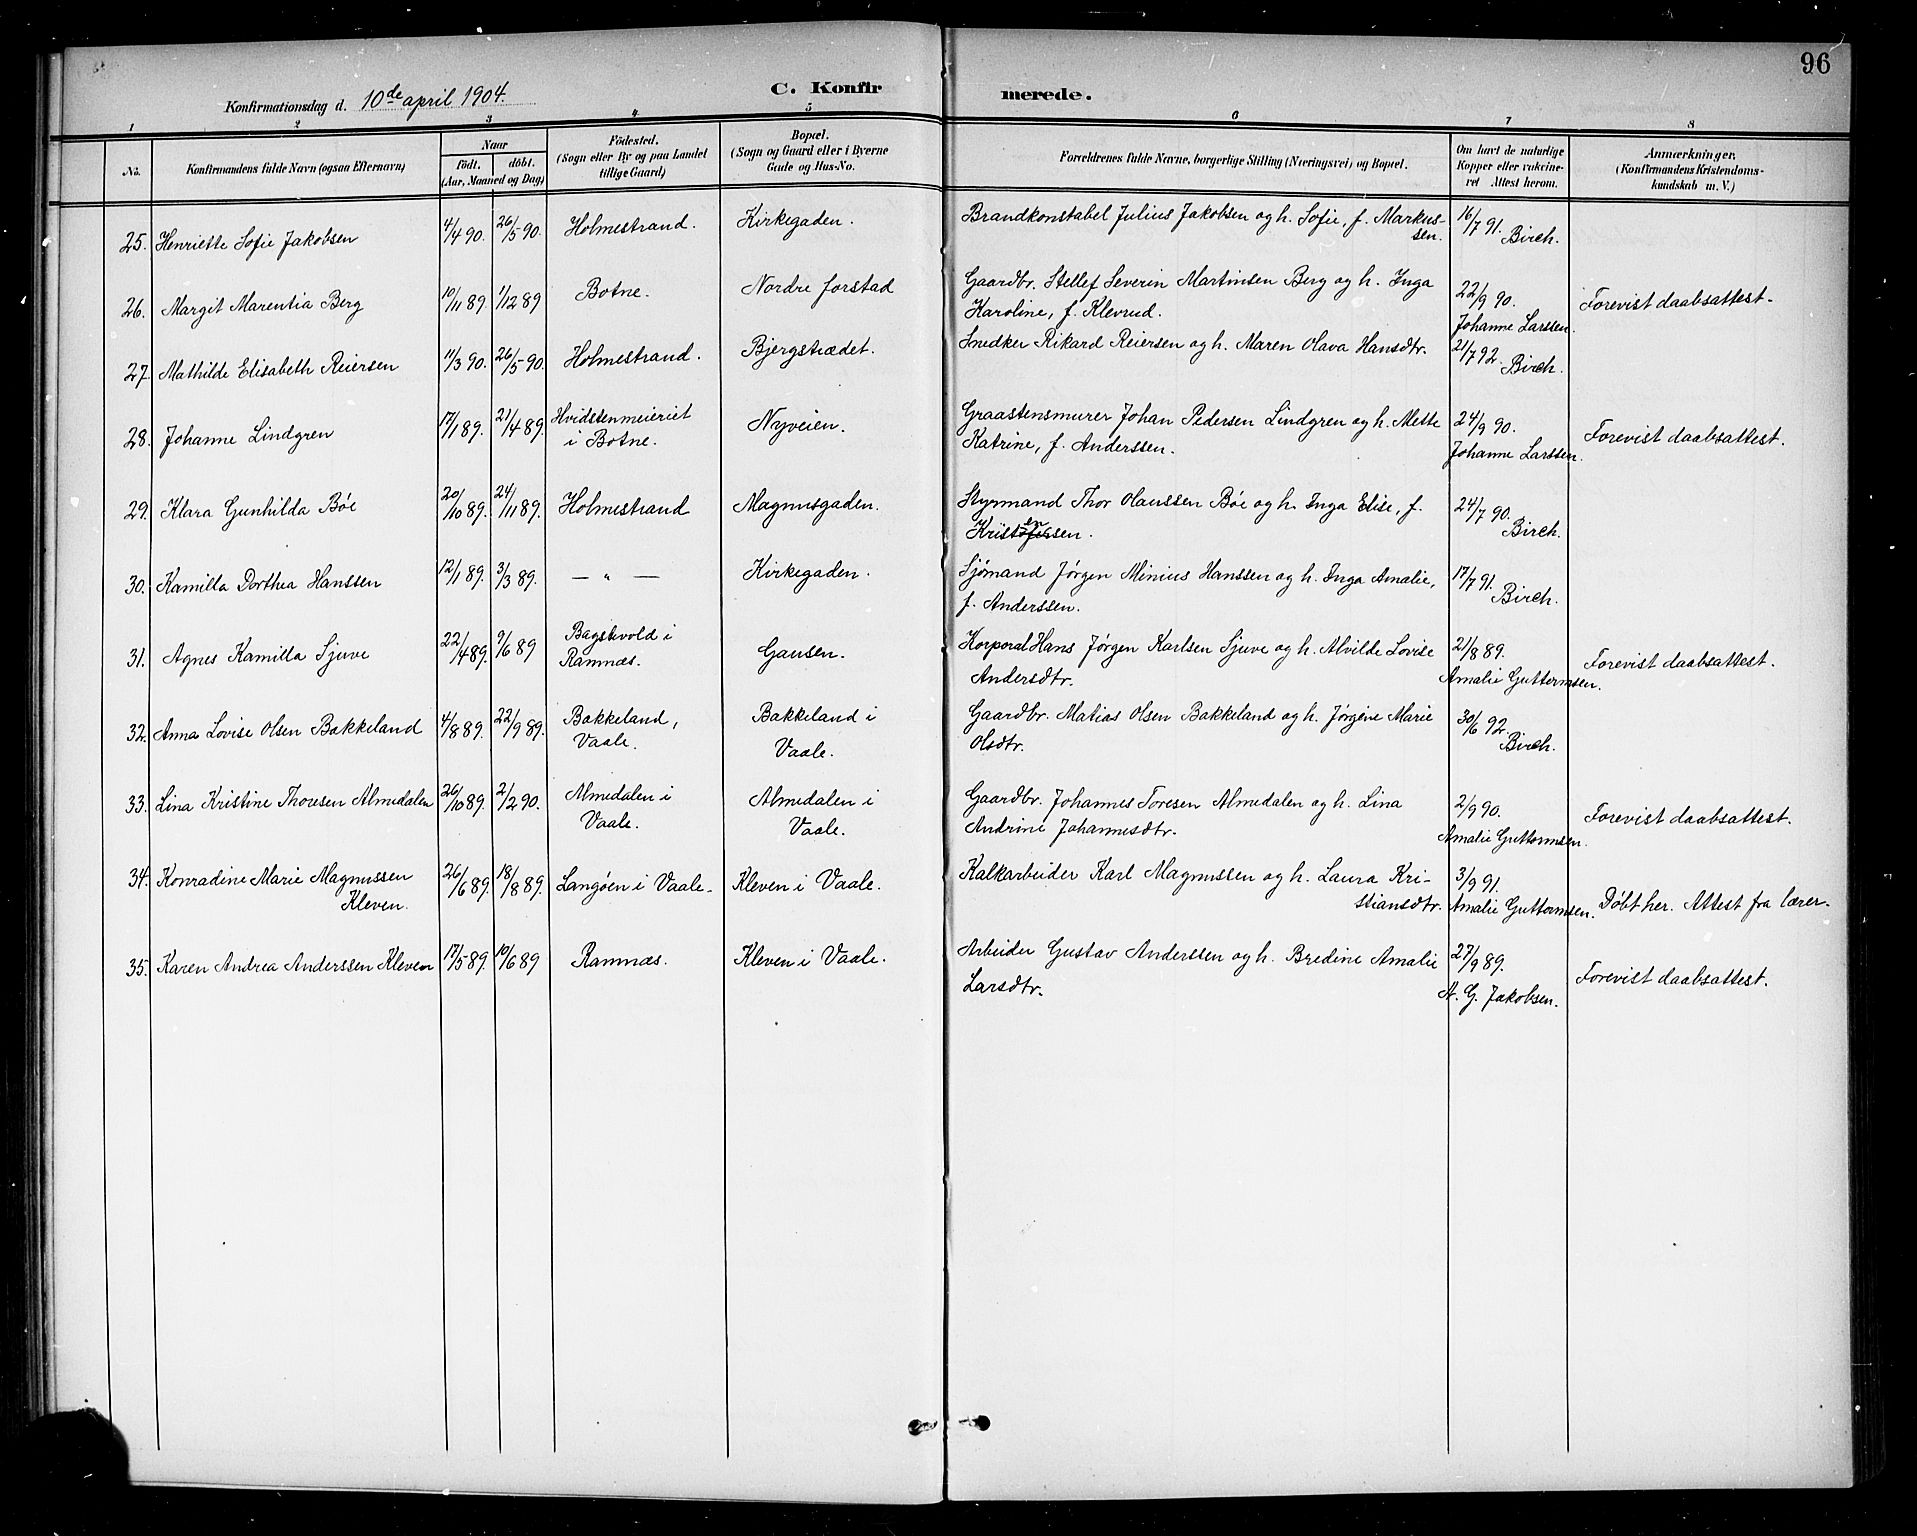 96
Konfirmationsdag d. 10de april 1904.
C. Konfirmerede.
1 2 3 4 5 6 7 8
No.
Konfirmandens fulde Navn (ogsaa Efternavn)
Naar
födt. döbt.
(Aar, Maaned og Dag)
Födested.
(Sogn eller By og paa Landet
tillige Gaard)
Bopæl.
(Sogn og Gaard eller i Byerne
Gade og Hus-No.
Forældrenes fulde Navne, borgerlige Stilling (Næringsvei) og Bopæl.
Om havt de naturlige
Kopper eller vakcine-
ret Attest herom.
Anmærkninger.
(Konfirmandens Kristendoms-
kundskab m. V.)
25. Henriette Sofie Jakobsen 4/4 90. 26/5 90. Holmestrand. Kirkegaden. Brandkonstabel Julius Jakobsen og h. Sofie, f. Markus-
sen. 16/7 91. Birch.
26. Margit Marentia Berg 10/11 89. 1/12 89 Botne. Nordre forstad Gaardbr. Stellef Severin Martinsen Berg og h. Inga
Karoline, f. Klevrud. 22/9 90. Johanne Larssen. Forevist daabsattest.
27. Mathilde Elisabeth Reiersen 11/3 90. 26/5 90. Holmestrand. Bjergstrædet. Snedker Rikard Reiersen og h. Maren Olava Hansdtr. 21/7 92. Birch.
28. Johanne Lindgren 17/1 89. 21/4 89. Hvidstenmeieriet
i Botne. Nyveien. Graastensmurer Johan Pedersen Lindgren og h. Mette
Katrine, f. Anderssen. 24/9 90. Johanne Larssen. Forevist daabsattest.
29. Klara Gunhilda Bøe 20/10 89. 24/11 89. Holmestrand Magnusgaden. Styrmand Thor Olaussen Bøe og h. Inga Elise, f.
Kristensen. 24/7 90. Birch.
30. Kamilla Dorthea Hanssen 12/1 89. 3/3 89. — " — Kirkegaden. Sjømand Jørgen Minius Hanssen og h. Inga Amalie,
f. Anderssen. 17/7 91. Birch.
31. Agnes Kamilla Sjuve 22/4 89. 9/6 89 Bagstevold i
Ramnæs. Gausen. Korporal Hans Jørgen Karlsen Sjuve og h. Alvilde Lovise
Andersdtr. 21/8 89. Amalie Guttormsen. Forevist daabsattest.
32. Anna Lovise Olsen Bakkeland 4/8 89. 22/9 89. Bakkeland,
Vaale. Bakkeland i
Vaale. Gaardbr. Matias Olsen Bakkeland og h. Jørgine Marie
Olsdtr. 30/6 92. Birch.
33. Lina Kristine Thoresen Almedalen 26/10 89. 2/2 90. Almedalen i
Vaale. Almedalen i
Vaale. Gaardbr. Johannes Toresen Almedalen og h. Lina
Andrine Johannesdtr. 2/9 90. Amalie Guttormsen. Forevist daabsattest.
34. Konradine Marie Magnussen
Kleven. 26/6 89. 18/8 89. Langøen i Vaale. Kleven i Vaale. Kalkarbeider Karl Magnussen og h. Laura Kri-
stiansdtr. 3/9 91. Amalie Guttormsen. Døbt her. Attest fra lærer.
35. Karen Andrea Anderssen Kleven 17/5 89. 10/6 89 Ramnæs. Kleven i Vaale. Arbeider Gustav Anderssen og h. Bredine Amalie
Larsdtr. 27/9 89. A. G. Jakobsen. Forevist daabsattest.